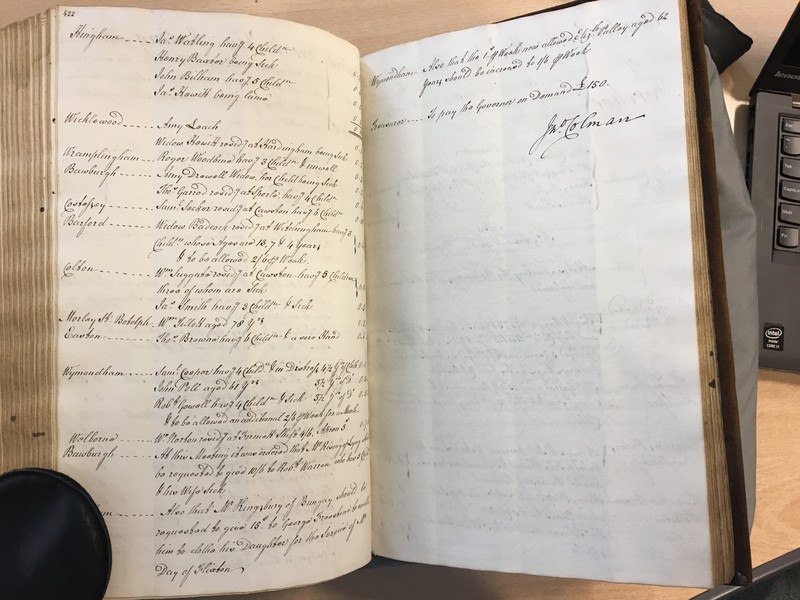 422
Hingham ---- Jas. Watling havg 4 Childn
Henry Baxter being Sick
John Bilham havg 5 Childn
Jas. Howitt being lame
Wicklewood ---- Amy Loach
Widow Howitt residg at Hardingham being sick
Wramplingham ---- Roger Woodbine havg 3 Childn & unwell
Bawburgh ---- Amy Drewell Widow, her Child being sick
Thos. Garrod residg at havg 4 Childn
Costessey ---- Saml. Secker residg at Cawston havg 6 Childn
Barford ---- Widow Badcock residg at Witchingham havg 3
Childn whose Ages are 13, 7 & 4 Years
to be allowed 2/6 p Week
Colton ---- Wm. Suggate residg at Cawston havg 5 Children
three of whom are Sick
Jas. Smith havg 3 Childn & Sick
Morley St. Botolph. Wm. Tillett aged 78 Yrs
Easton ---- Thos. Browne havg 6 Childn & a sore Hand
Wymondham ---- Saml. Cooper havg 4 Childn & in Distress 4½ Yds Cloth
John Pell aged 41 Yrs 3½ Yds do
Robt. Gowell havg 4 Childn & Sick 3½ Yds do
& to be allowed an additional 2/6 p Week for a Month
Welborne ---- Wm. Norton residg at Forncett
Bawburgh ---- At this Meeting it was ordered that Mr. of
be requested to give 10/6 to Robt. Warren who has Childn
& his Wife Sick
Also that Mr. Kingsbury of Bungay should be
requested to give 15/ to George to enable
him to clothe his Daughter for the Service of Mr.
Day of Flixton
Wymondham Also that the 1/ p Week now allowed Elizth. Pulley aged 62
Years should be increased to 1/6 p Week
Treasurer ---- To pay the Governor on Demand £150.
Jno. Colman
lenovo
Tab
CapsLock
Shift
Fn
intel
inside
CORE i7